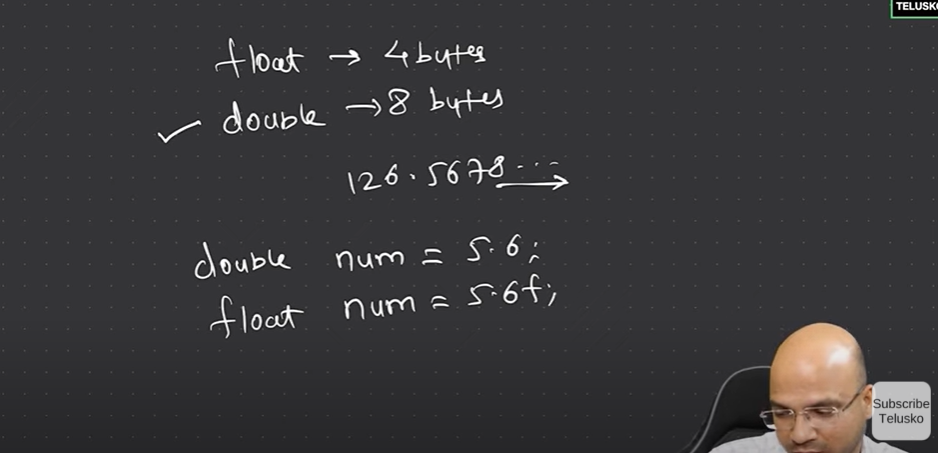 TELUSKO
float → 4 bytes
double → 8 bytes
126.5678...
double num = 5.6;
float num = 5.6f;
Subscribe
Telusko